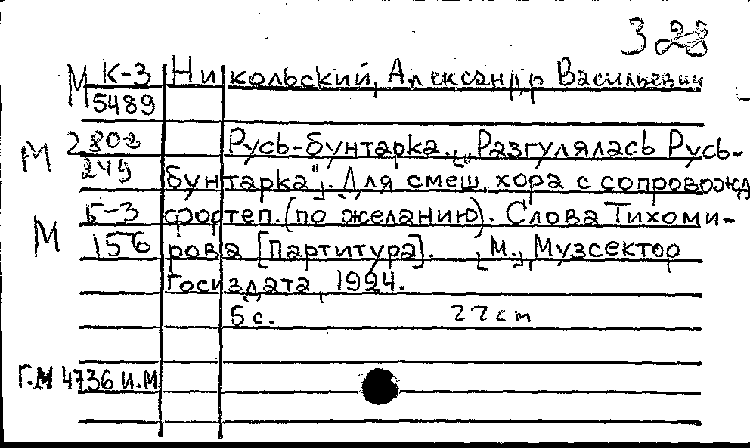 328
М К-3 Никольский, Александр Васильевич
5489
2802 Русь-бунтарка. „Разгулялась Русь-
М 249 бунтарка". Для смеш. хора с сопровожд
Б-3 фортеп. (по желанию). Слова Тихоми-
М 156 рова [Партитура]. [М.], Музсектор
Госиздата, 1924.
6 с. 27 cm
Г.М 4736 И.М